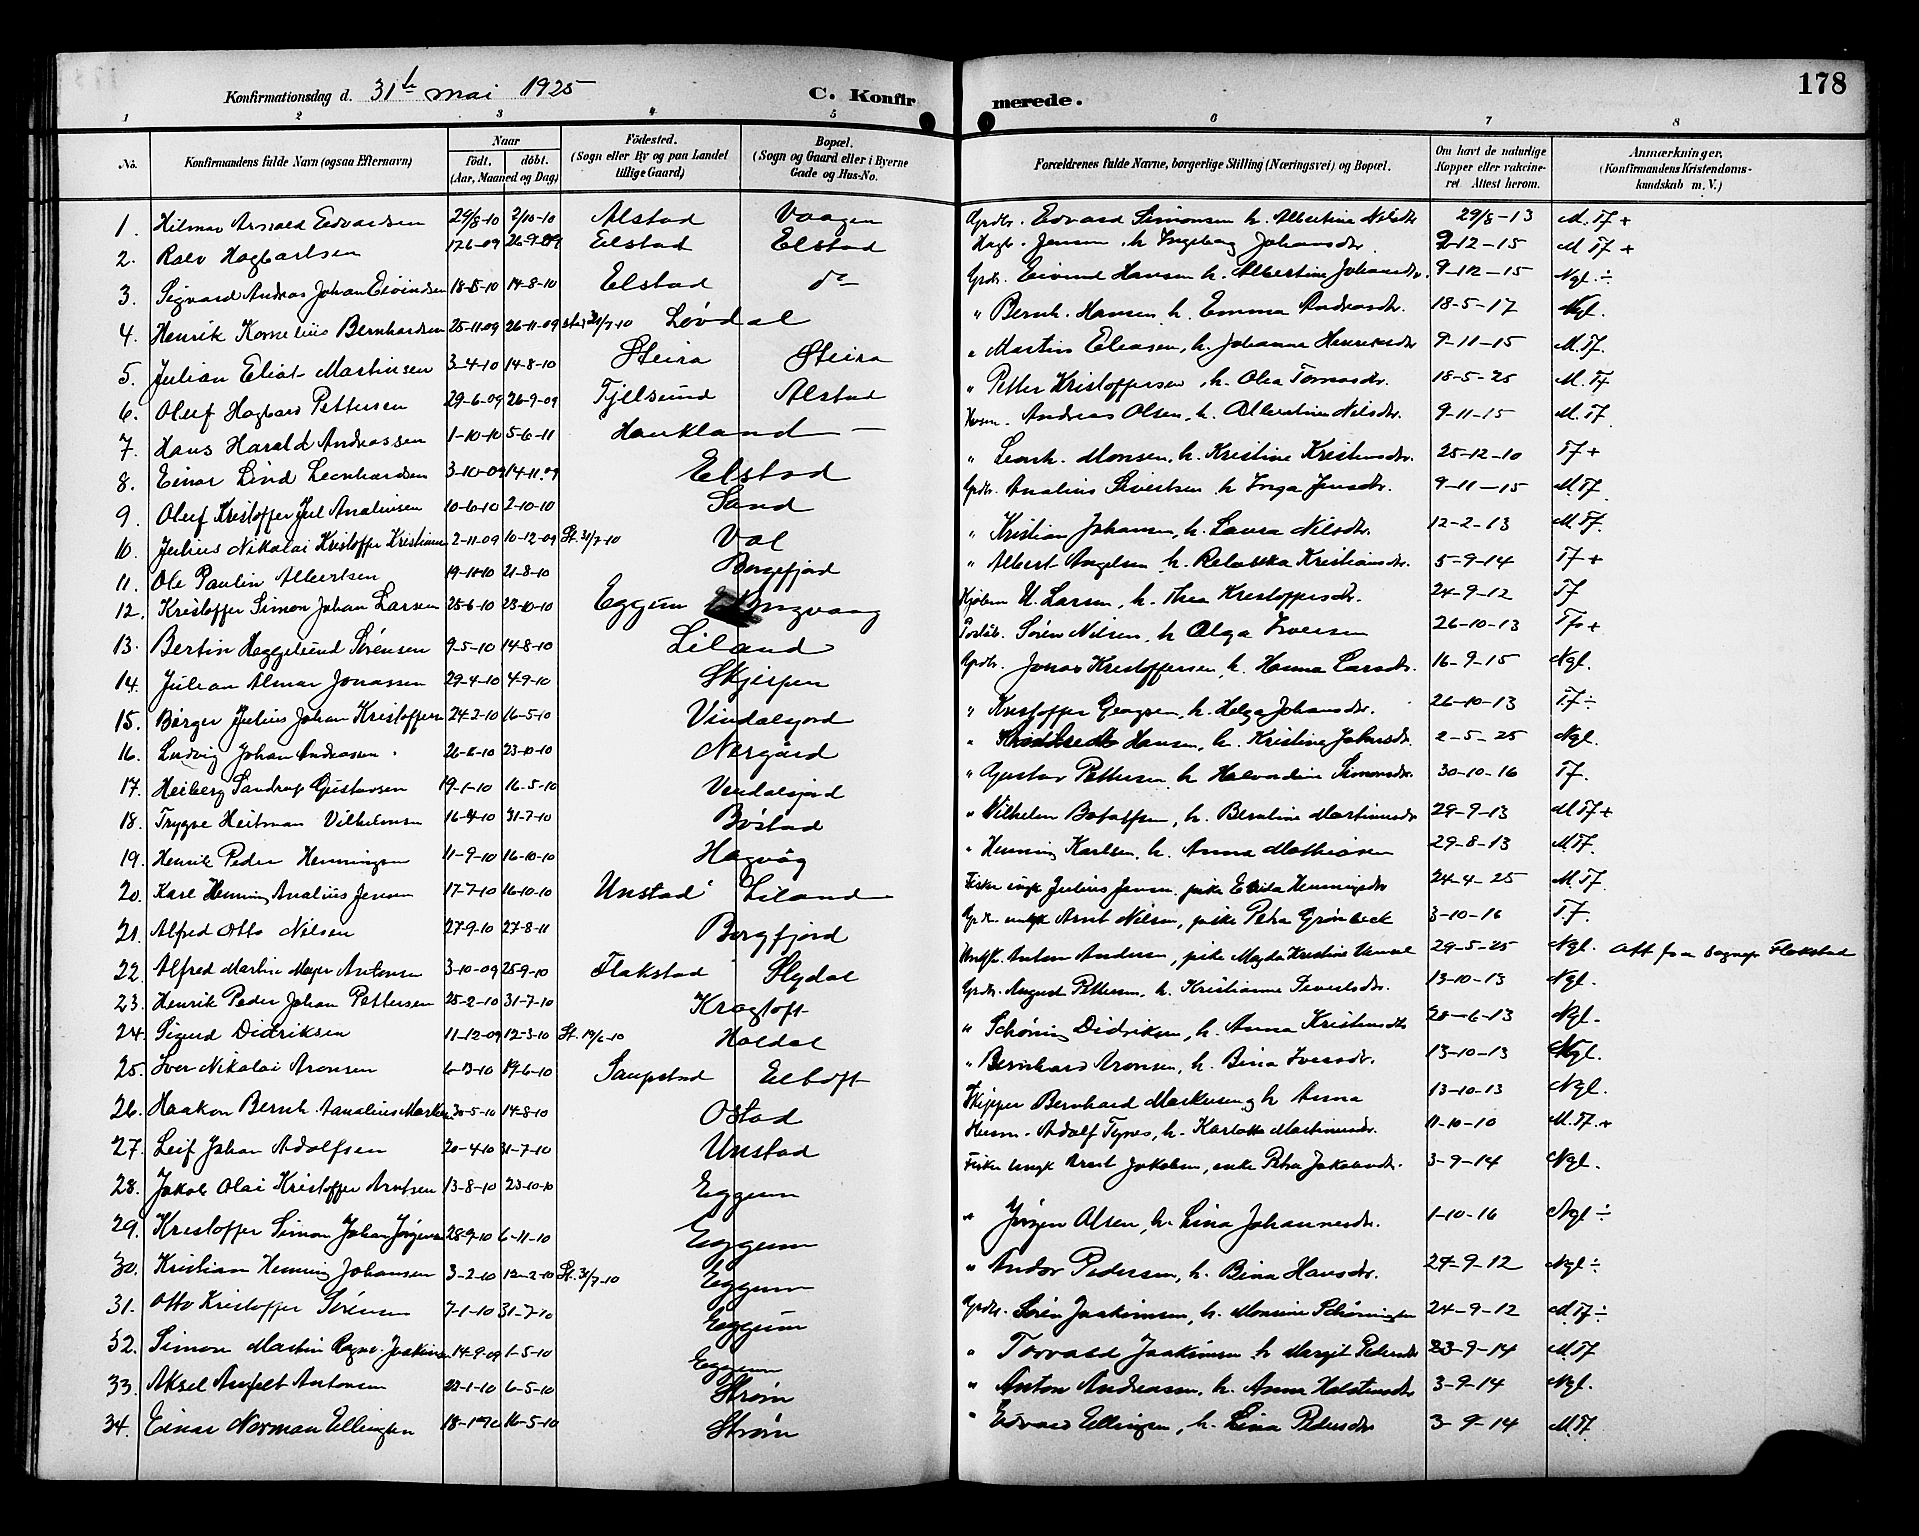 178
Konfirmationsdag d. 31te mai 1925 C. Konfirmerede.
1 2 3 4 5 6 7 8
No. Konfirmandens fulde Navn (ogsaa Efternavn) Naar födt. döbt. (Aar, Maaned og Dag) Födested. (Sogn eller By og paa Landet tillige Gaard) Bopæl. (Sogn og Gaard eller i Byerne Gade og Hus-No. Forældrenes fulde Navne, borgerlige Stilling (Næringsvei) og Bopæl. Om havt de naturlige Kopper eller vakcineret. Attest herom. Anmærkninger. (Konfirmandens Kristendomskundskab m. V.)
1. Hilmar Arvald Edvardsen 29/8-10 2/10-10 Alstad Vaagen Gpdbr. Edvard Simonsen h. Albertine Nilsdtr 29/8-13 M.Tf +
2. Rolv Hagbartsen 17-6-09 26-9-09 Elstad Elstad Hagb. Jensen, h. Ingeborg Johansdtr. 9-12-15 M Tf +
3. Sigvard Andreas Johan Eivindsen 18-5-10 14-8-10 Elstad do Gpdbr. Eivind Hansen h. Albertine Johansdtr. 9-12-15 Ngl. ÷
4. Henrik Kornelius Bernhardsen 25-11-09 26-11-09 st. 31/7-10 Lövdal " Bernh. Hansen h. Emma Andreasdtr. 18-5-17 Ngl.
5. Julian Eliot Martinsen 3-4-10 14-8-10 Steira Steira " Martin Eliasen, h. Johanna Henriksdtr 9-11-15 M.Tf.
6. Oluf Hagbard Pettersen 29-6-09 26-9-09 Fjellsund Alstad " Petter Kristoffersen, h. Olea Tomasdtr. 18-5-25 M.Tf
7. Hans Harald Andreassen 1-10-10 5-6-11 Haukland — Husm. Andreas Olsen, h. Albertine Nilsdtr. 9-11-15 M.Tf
8. Einar Lind Leonhardsen 3-10-09 14-11-09 Elstad " Leonh. Monsen, h. Kristine Kristensdtr. 25-12-10 Tf +
9. Oluf Kristoffer Juel Analiusen 10-6-10 2-10-10 Sand Gpdbr. Analius Sivertsen h Inga Jensdtr. 9-11-15 M.Tf
10. Julius Nikolai Kristoffer Kristiansen 2-11-09 10-12-09 St. 31/7-10 Val " Kristian Johansen, h. Laura Nilsdtr 12-2-13 M.Tf.
11. Ole Paulin Albertsen 19-1-10 21-8-10 Borgefjord " Albert Angelsen h. Rebekka Kristiansdtr. 5-9-14 Tf +
12. Kristoffer Simon Johan Larsen 25-6-10 23-10-10 Eggum Ringvaag Kjöbm. U. Larsen, h. Thea Kristoffersdtr. 24-9-12 Tf
13. Bertin Heggelund Sörensen 9-5-10 14-8-10 Liland Sören Nilsen, h Olga Iversen 26-10-13 Tf +
14. Julian Almar Jonassen 29-4-10 4-9-10 Skjerpen Gpdbr. Jonas Kristoffersen, h. Hanna Larsdtr. 16-9-15 Ngl.
15. Börger Julius Johan Kristoffersen 24-2-10 16-5-10 Vindalsjord " Kristoffer Georgsen, h. Helga Johansdtr. 26-10-13 Tf ÷
16. Ludvig Johan Andreasen 23-10-10 Nergård " Hansen, h. Kristine Johansdtr. 2-5-25 Ngl.
17. Heiberg Sandrup Gustavsen 19-1-10 16-5-10 Vendalsjord " Gustav Pettersen h Halvardine Simonsdtr. 30-10-16 Tf.
18. Trygve Heitman Vilhelmsen 16-4-10 31-7-10 Böstad " Vilhelm Botolfsen, h. Berntine Martinusdtr 29-9-13 M Tf +
19. Henrik Peder Henningsen 11-9-10 16-10-10 Hagvåg " Henning Karlsen, h. Anna Mathiasen 29-8-13 M.Tf.
20. Karl Henning Analius Jensen 17-7-10 16-10-10 Unstad Liland Fisker ungk Julius Jensen, pike Emilie Henningsdtr 24-4-25 M.Tf.
21. Alfred Otto Nilsen 27-9-10 27-8-11 Borgfjord ungk Arnt Nilsen, pike Petra Grönbeck 3-10-16 Tf.
22. Alfred Martin Meyer Antonsen 3-10-09 25-9-10 Flakstad Slydal Ungk. Anton Andersen, pike Magda Kristine 29-5-25 Ngl. Att fra Sognepr Flakstad
23. Henrik Peder Johan Pettersen 25-2-10 31-7-10 Kragtoft Gpdbr. August Pettersen, h. Kristianna Sivertsdtr. 13-10-13 Ngl.
24. Sigurd Didriksen 11-12-09 12-3-10 St. 19/6-10 Holdal " Schöning Didriksen, h. Anna Kristensdtr 20-6-13 Ngl.
25. Iver Nikolai Aronsen 19-6-10 Saupstad Eltoft " Bernhard Aronsen, h. Bina Iversdtr. 13-10-13 Ngl.
26. Haakon Bernh. Analius Markusen 30-5-10 14-8-10 Ostad Skipper Bernhard Markussen og h Anna 13-10-13 Ngl.
27. Leif Johan Adolfsen 20-4-10 31-7-10 Unstad Husm. Adolf Tynes, h. Karlotte Martinusdtr. 11-10-10 M.Tf. +
28. Jakob Olai Kristoffer Arntsen 13-8-10 23-10-10 Eggum Fisker Ungk Arnt Jakobsen, enke Petra Jakobsdtr. 3-9-14 Ngl.
29. Kristoffer Simon Johan Jörgensen 28-9-10 6-11-10 Eggum " Jörgen Olsen, h. Lina Johannesdtr. 1-10-16 Ngl ÷
30. Kristian Henning Johansen 3-2-10 12-2-10 St. 31/7-10 Eggum " Andor Pedersen, h. Bina Hansdtr. 27-9-12 Ngl ÷
31. Otto Kristoffer Sörensen 7-1-10 31-7-10 Eggum Gpdbr. Sören Joakimsen, h. Monsine Schöningsen 24-9-12 M.Tf ÷
32. Simon Martin Ragnv. Joakimsen 14-9-09 1-5-10 Eggum " Torvald Joakimsen h Margit Pedersdtr 23-9-14 M.Tf
33. Aksel Anfelt Antonsen 22-1-10 6-5-10 Ström " Anton Andreassen, h. Anna Holstensdtr 3-9-14 Ngl.
34. Einar Norman Ellingsen 18-1-10 16-5-10 Ström " Edvard Ellingsen, h. Lina Pedersdtr 3-9-14 M.Tf.